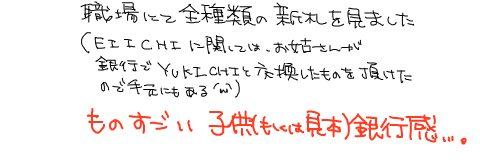 職場にて全種類の新札を見ました
(EIICHIに関しては、お姑さんが
銀行でYUKICHIと交換したものを頂けた
ので手元にもある'ω')
ものすごい子供(もしくは見本)銀行感…。